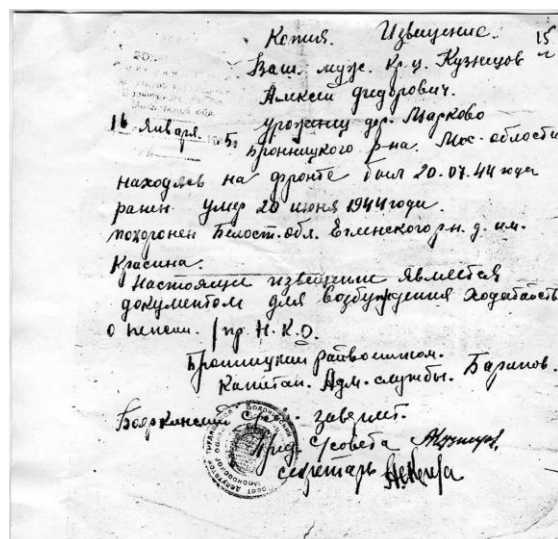 Копия. Извещение. 15
Ваш муж. Кр-ц. Кузнецов
Алексей Федорович.
16 января 5
урожениц дер. Марково
Бронницкого р-на. Мос. области
находясь на фронте был 20.07.44 года
ранен. умер 20 июня 1944 года.
похоронен Белост. обл. д. им.
Красина.
Настоящи извещение является
документом для возбуждения ходатайств
о пенсии. (пр. Н.К.О.
Бронницкий райвоенком.
Капитан. Адм. службы. Баранов.
завери
Пред. с/совета
секретарь